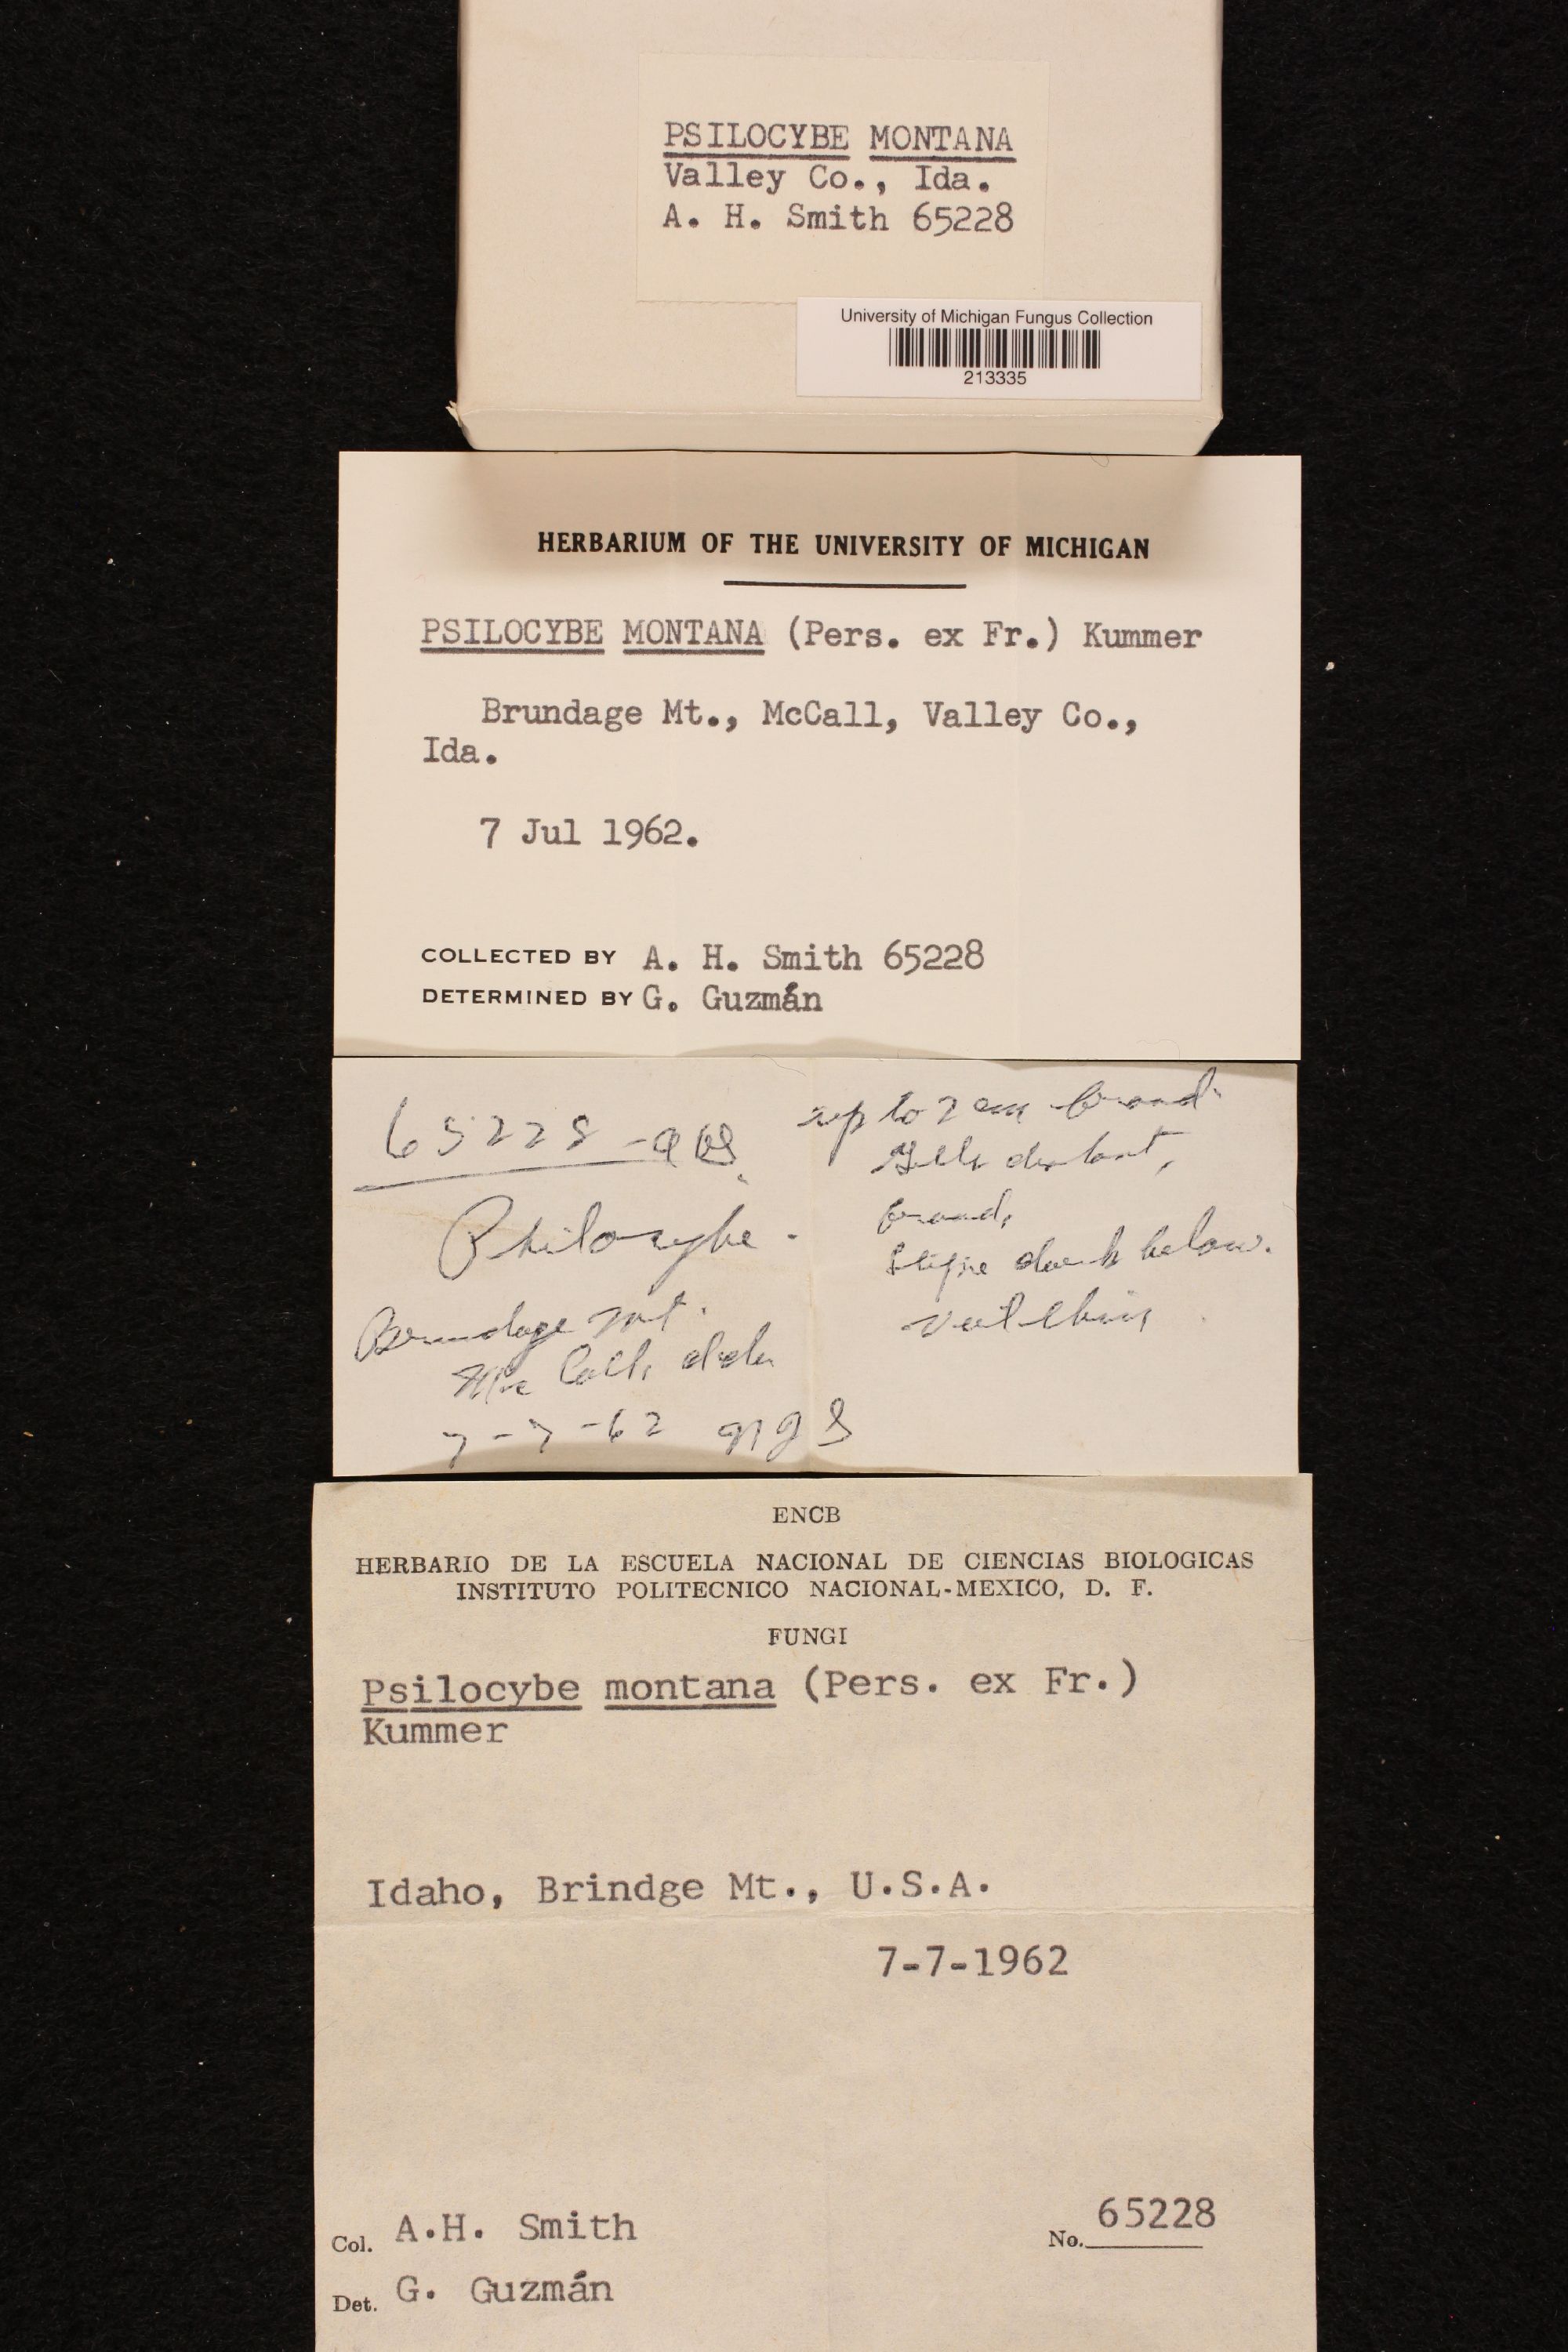 PSILOCYBE MONTANA
Valley Co., Ida.
A. H. Smith 65228
University of Michigan Fungus Collection
213335
HERBARIUM OF THE UNIVERSITY OF MICHIGAN
PSILOCYBE MONTANA (Pers. ex Fr.) Kummer
Brundage Mt., McCall, Valley Co.,
Ida.
7 Jul 1962.
COLLECTED BY A. H. Smith 65228
DETERMINED BY G. Guzmán
65228 -
Psilocybe.
Brundage Mt.
Mc Call, Ida
7-7-62
up to 2 cm broad.
Gills distant,
broad,
Stipe dark below.
Veil thin
ENCB
HERBARIO DE LA ESCUELA NACIONAL DE CIENCIAS BIOLOGICAS
INSTITUTO POLITECNICO NACIONAL-MEXICO, D. F.
FUNGI
Psilocybe montana (Pers. ex Fr.)
Kummer
Idaho, Brindge Mt., U.S.A.
7-7-1962
Col. A.H. Smith
No. 65228
Det. G. Guzmán